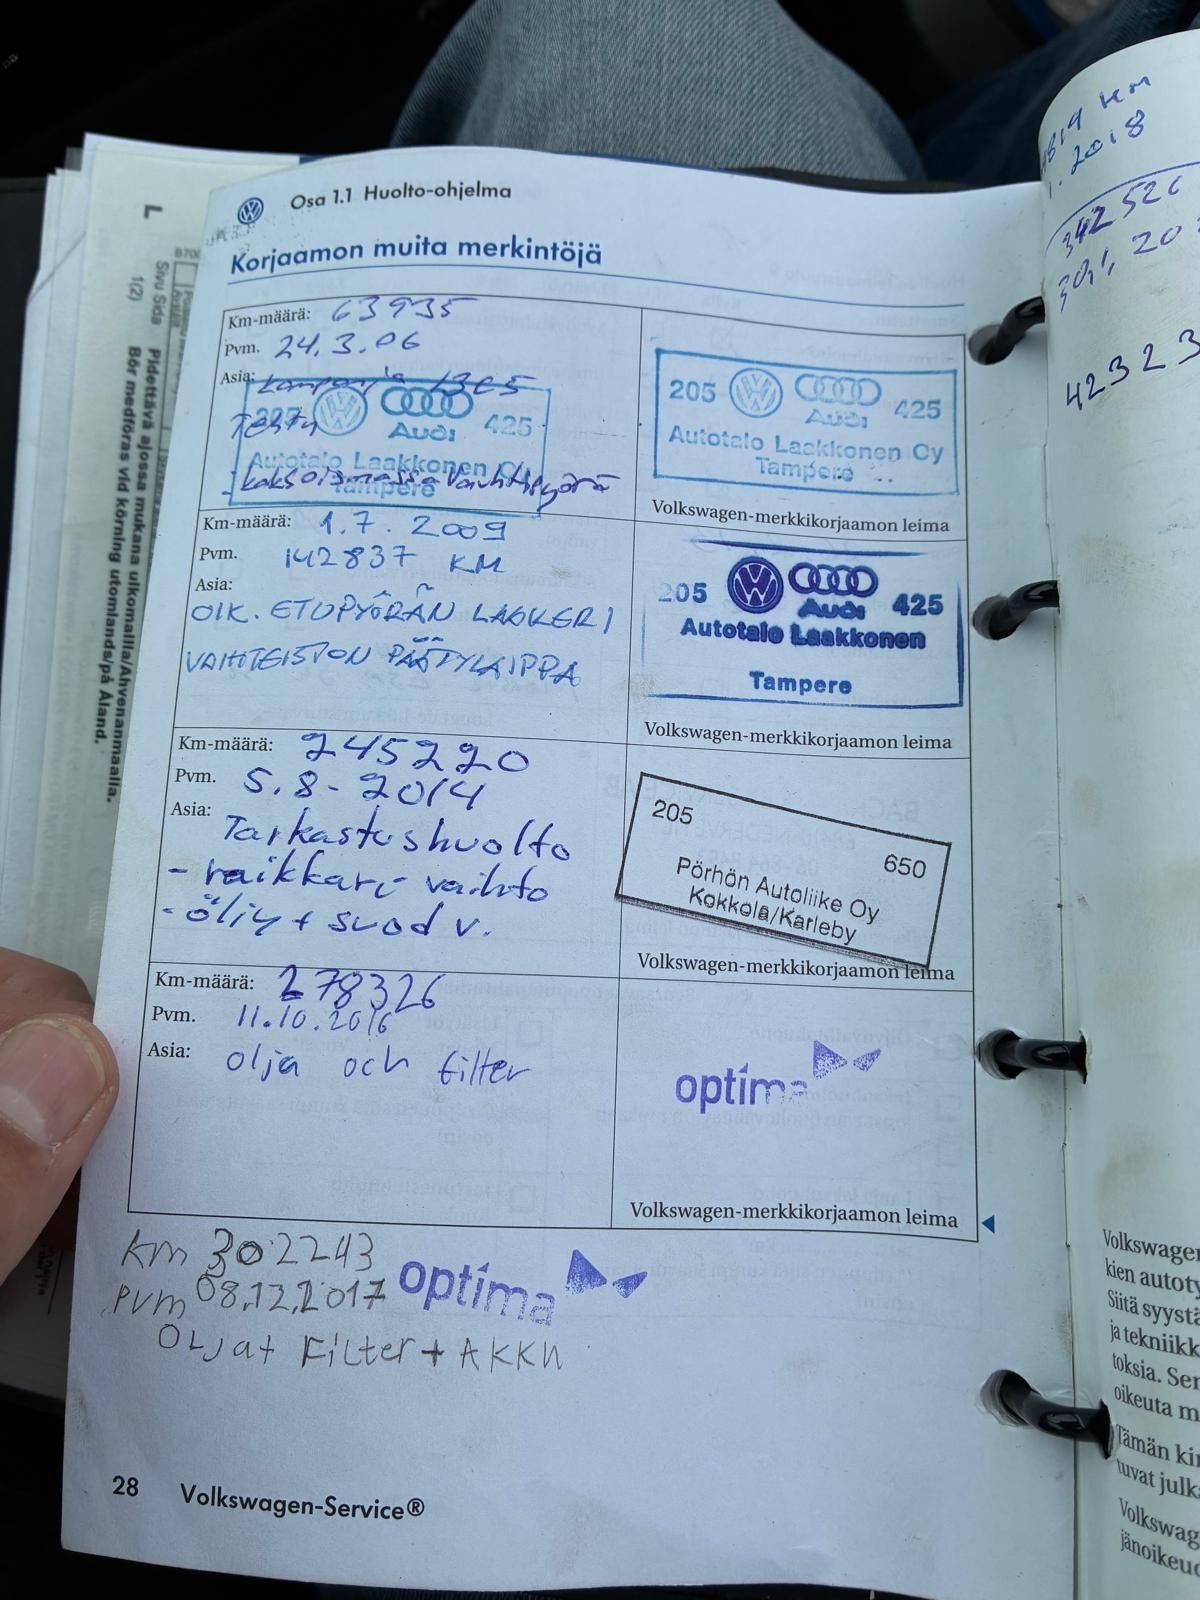 Osa 1.1 Huolto-ohjelma
Korjaamon muita merkintöjä
Km-määrä: 63935
Pvm. 24.3.06
Asia: kampanja 13C5
Tehty
- kaksoismassavauhtipyörä
205 Audi 425
Autotalo Laakkonen Oy
Tampere
205 Audi 425
Autotalo Laakkonen Oy
Tampere
Volkswagen-merkkikorjaamon leima
Km-määrä: 1.7.2009
Pvm. 142837 KM
Asia:
OIK. ETUPYÖRÄN LAAKERI
VAIHTEISTON PÄÄTYLAIPPA
205 Audi 425
Autotalo Laakkonen
Tampere
Volkswagen-merkkikorjaamon leima
Km-määrä: 245220
Pvm. 5.8-2014
Asia: Tarkastushuolto
- raikkari vaihto
- öljy + suod v.
205
650
Pörhön Autoliike Oy
Kokkola/Karleby
Volkswagen-merkkikorjaamon leima
Km-määrä: 278326
Pvm. 11.10.2016
Asia: olja och filter
optima
Volkswagen-merkkikorjaamon leima
Km 302243
Pvm 08.12.2017
optima
OLjat Filter + AKKU
28 Volkswagen-Service®
L
Sivu Sida
1(2)
Pidettävä ajossa mukana ulkomailla/Ahvenanmaalla.
Bör medföras vid körning utomlands/på Åland.
KM
2018
342526
42323
Volkswagen
kien autoty
Siitä syystä
ja tekniikk
toksia. Ser
oikeuta m
Tämän kir
tuvat julk
Volkswag
jänoikeuc